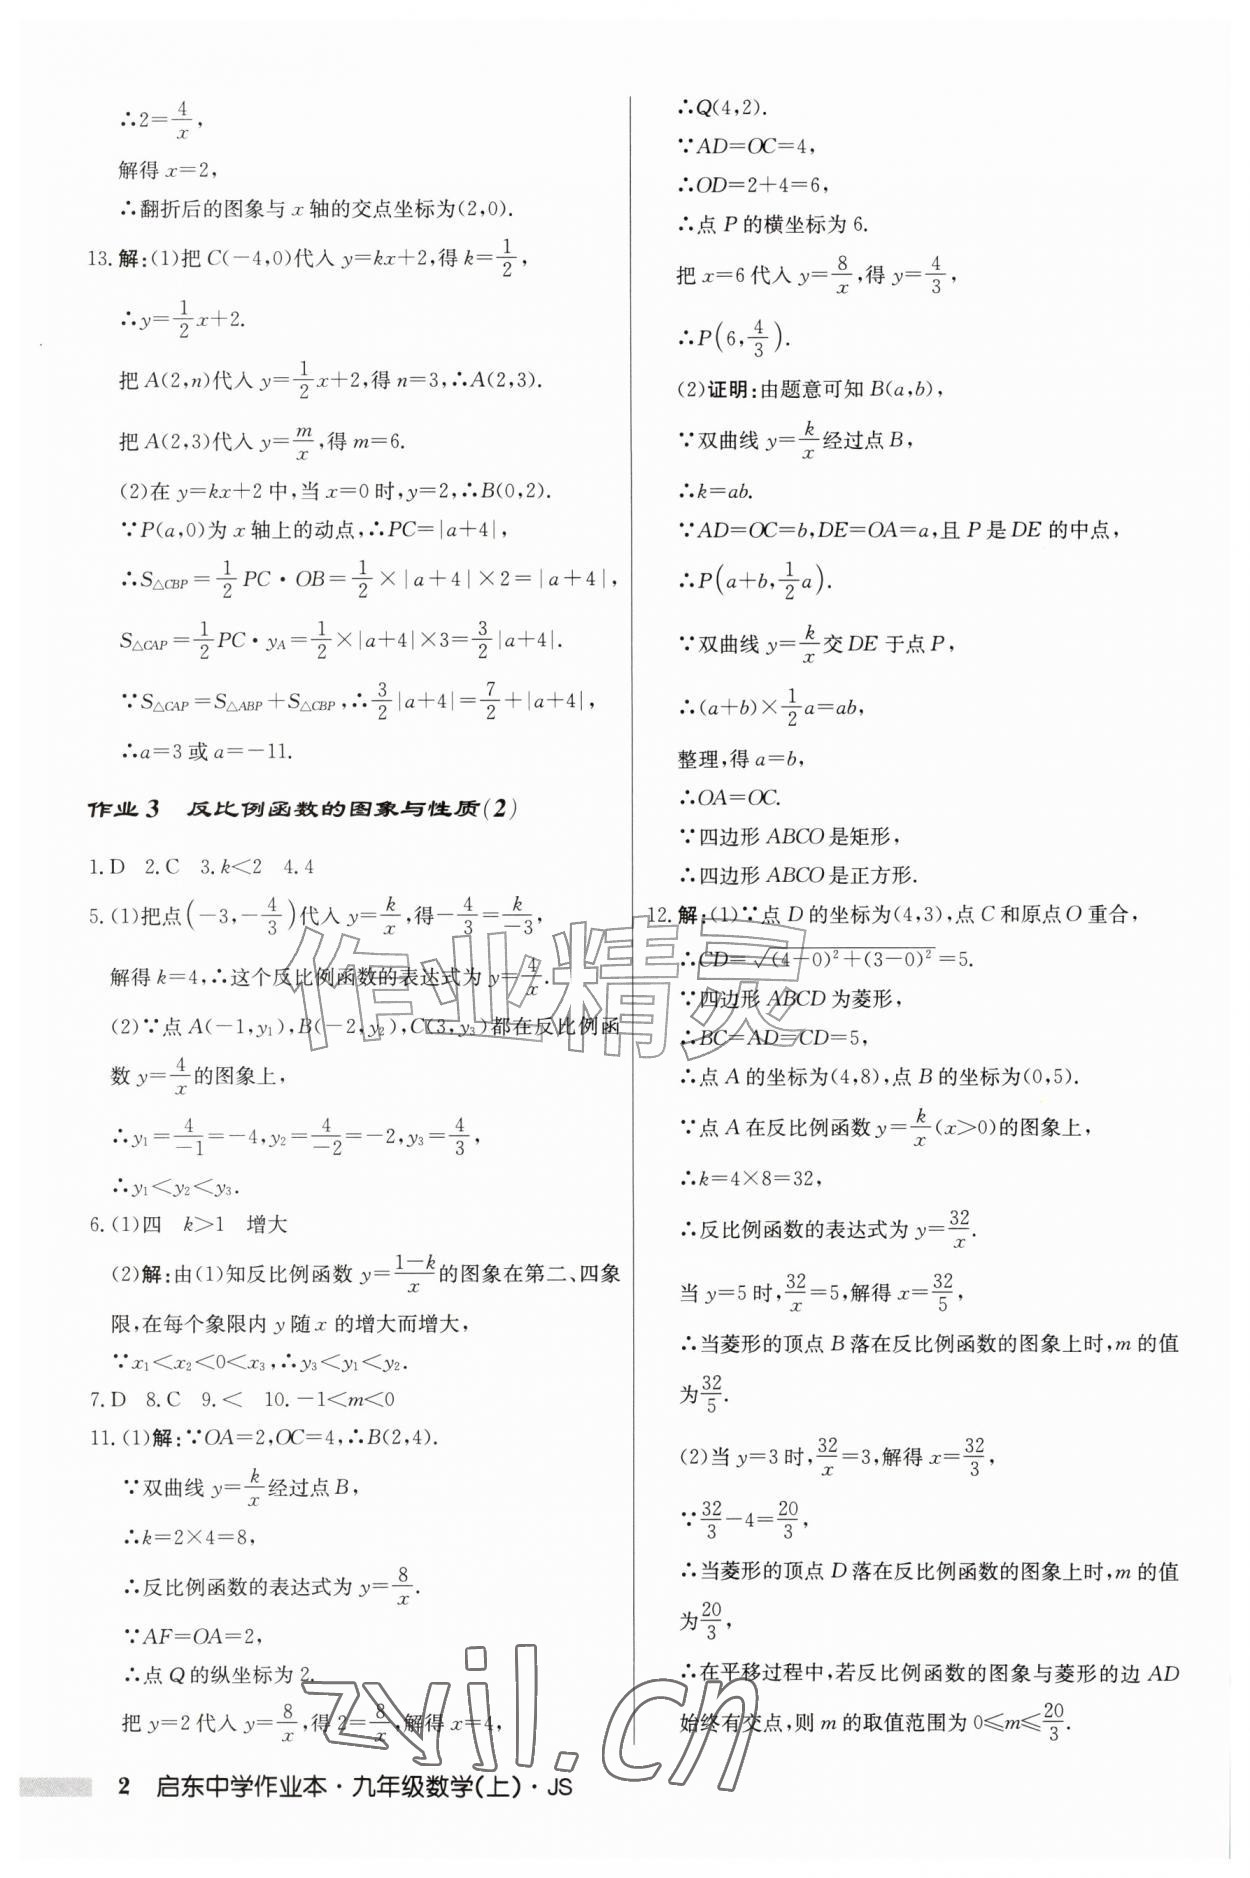 ∴2=4/x,
解得 x=2,
∴翻折后的图象与 x 轴的交点坐标为(2,0).
13.解:(1)把 C(-4,0)代入 y=kx+2,得 k=1/2,
∴y=1/2x+2.
把 A(2,n)代入 y=1/2x+2,得 n=3,∴A(2,3).
把 A(2,3)代入 y=m/x,得 m=6.
(2)在 y=kx+2 中,当 x=0 时,y=2,∴B(0,2).
∵P(a,0)为 x 轴上的动点,∴PC=|a+4|,
∴S△CBP=1/2PC·OB=1/2×|a+4|×2=|a+4|,
S△CAP=1/2PC·yA=1/2×|a+4|×3=3/2|a+4|.
∵S△CAP=S△ABP+S△CBP,∴3/2|a+4|=7/2+|a+4|,
∴a=3 或 a=-11.
作业 3 反比例函数的图象与性质(2)
1.D 2.C 3.k<2 4.4
5.(1)把点(-3,-4/3)代入 y=k/x,得-4/3=k/-3,
解得 k=4,∴这个反比例函数的表达式为 y=4/x.
(2)∵点 A(-1,y₁),B(-2,y₂),C(3,y₃)都在反比例函
数 y=4/x的图象上,
∴y₁=4/-1=-4,y₂=4/-2=-2,y₃=4/3,
∴y₁<y₂<y₃.
6.(1)四 k>1 增大
(2)解:由(1)知反比例函数 y=1-k/x的图象在第二、四象
限,在每个象限内 y 随 x 的增大而增大,
∵x₁<x₂<0<x₃,∴y₃<y₁<y₂.
7.D 8.C 9.< 10.-1<m<0
11.(1)解:∵OA=2,OC=4,∴B(2,4).
∵双曲线 y=k/x经过点 B,
∴k=2×4=8,
∴反比例函数的表达式为 y=8/x.
∵AF=OA=2,
∴点 Q 的纵坐标为 2.
把 y=2 代入 y=8/x,得 2=8/x,解得 x=4,
∴Q(4,2).
∵AD=OC=4,
∴OD=2+4=6,
∴点 P 的横坐标为 6.
把 x=6 代入 y=8/x,得 y=4/3,
∴P(6,4/3).
(2)证明:由题意可知 B(a,b),
∵双曲线 y=k/x经过点 B,
∴k=ab.
∵AD=OC=b,DE=OA=a,且 P 是 DE 的中点,
∴P(a+b,1/2a).
∵双曲线 y=k/x交 DE 于点 P,
∴(a+b)×1/2a=ab,
整理,得 a=b,
∴OA=OC.
∵四边形 ABCO 是矩形,
∴四边形 ABCO 是正方形.
12.解:(1)∵点 D 的坐标为(4,3),点 C 和原点 O 重合,
∴CD=√(4-0)²+(3-0)²=5.
∵四边形 ABCD 为菱形,
∴BC=AD=CD=5,
∴点 A 的坐标为(4,8),点 B 的坐标为(0,5).
∵点 A 在反比例函数 y=k/x(x>0)的图象上,
∴k=4×8=32,
∴反比例函数的表达式为 y=32/x.
当 y=5 时,32/x=5,解得 x=32/5,
∴当菱形的顶点 B 落在反比例函数的图象上时,m 的值
为32/5.
(2)当 y=3 时,32/x=3,解得 x=32/3,
∵32/3-4=20/3,
∴当菱形的顶点 D 落在反比例函数的图象上时,m 的值
为20/3,
∴在平移过程中,若反比例函数的图象与菱形的边 AD
始终有交点,则 m 的取值范围为 0≤m≤20/3.
作业精灵
zyjl.cn
2 启东中学作业本·九年级数学(上)·JS